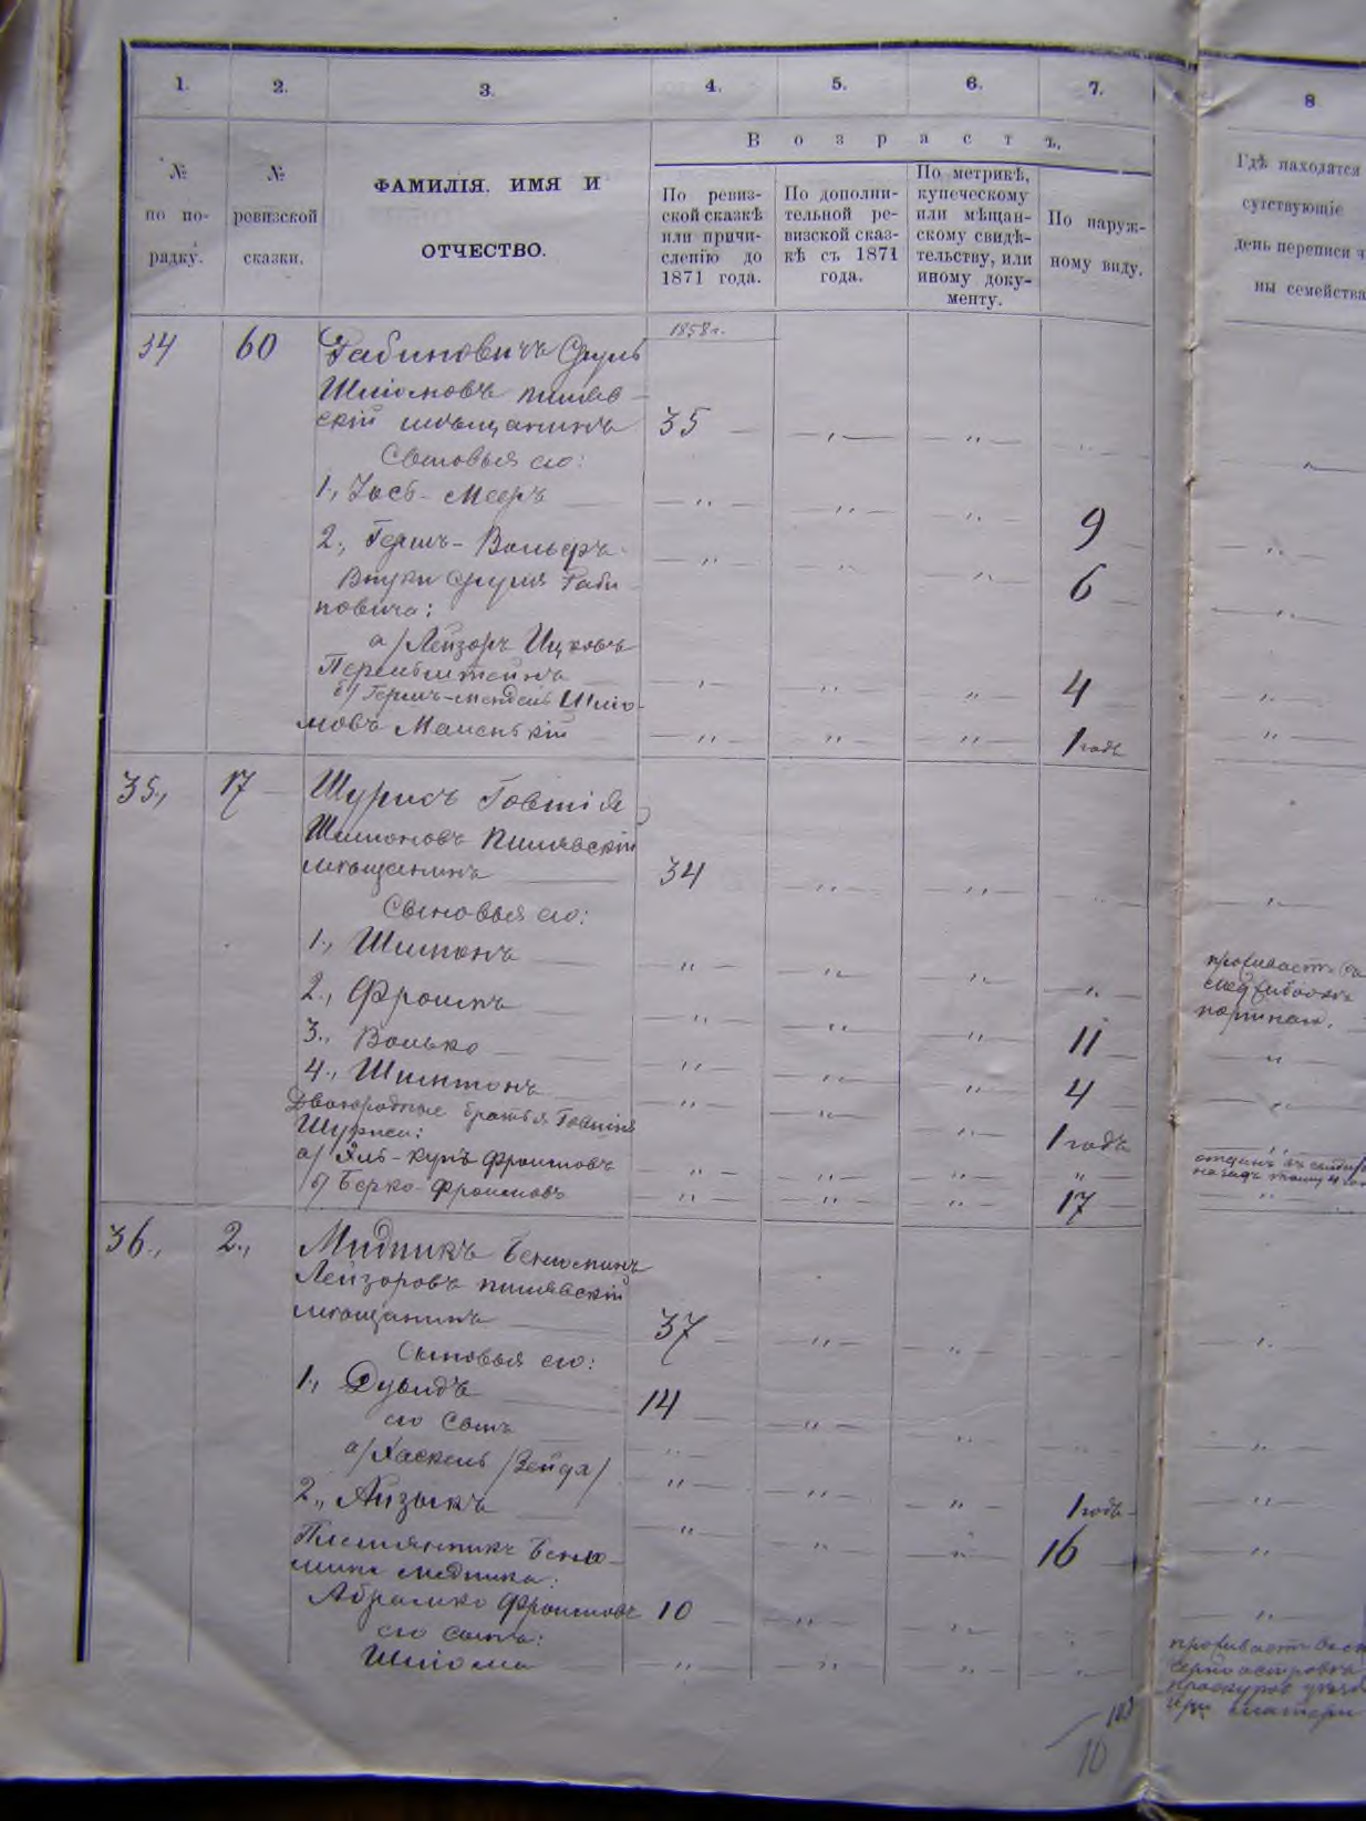 1. 2. 3. 4. 5. 6. 7. 8
Возрастъ.
№
по по-
рядку.
№
ревизской
сказки.
ФАМИЛІЯ. ИМЯ И
ОТЧЕСТВО.
По ревиз-
ской сказкѣ
или причи-
сленію до
1871 года.
По дополни-
тельной ре-
визской сказ-
кѣ съ 1871
года.
По метрикѣ,
купеческому
или мѣщан-
скому свидѣ-
тельству, или
иному доку-
менту.
По наруж-
ному виду.
Гдѣ находятся
сутствующіе
день переписи ч
ны семейства
1858 г.
34 60 Рабиновичъ Сруль
Шліомовъ пиляв-
скій мѣщанинъ 35
Сыновья его:
1., Іось-Мееръ 9
2., Гершъ-Вольфъ 6
Внуки Сруля Раби
новича:
а/ Лейзоръ Ицковъ
Перельштейнъ 4
б/ Гершъ-Мендель Шліо-
мовъ Маленькій 1 годъ
35., 17 Шурисъ Говшія
Шимоновъ Пилявскій
мѣщанинъ 34
Сыновья его:
1., Шимонъ
2., Фроимъ 11
3., Волько 4
4., Шимшонъ 1 годъ
Двоюродные братья Говшія
Шуриса:
а/ Янкель Фроимовъ
б/ Берко-Фроимовъ 17
проживаетъ
36., 2., Мидникъ Беньоминъ
Лейзоровъ пилявскій
мѣщанинъ 37
Сыновья его:
1., Дувидъ 14
его сынъ
а/ Хаскель /Зейдя/ 1 годъ
2., Айзыкъ 16
Племянникъ Беньо-
мина Мидника:
Абрамко Фроимовъ 10
его сынъ:
Шліома
проживаетъ
при матери
10